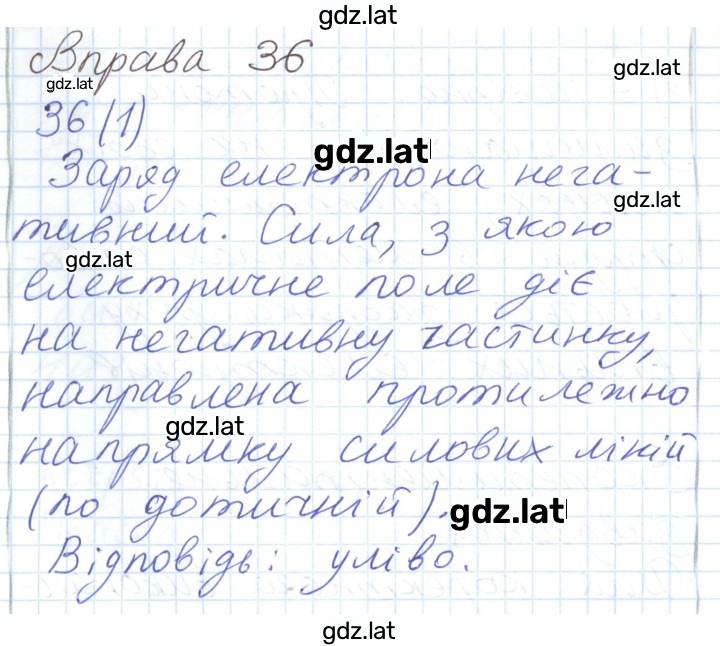 gdz.lat
Вправа 36
gdz.lat
gdz.lat
36(1)
gdz.lat
Заряд електрона нега-
gdz.lat
тивний. Сила, з якою
gdz.lat
електричне поле діє
на негативну частинку,
направлена протилежно
gdz.lat
напрямку силових ліній
(по дотичній).
gdz.lat
Відповідь: уліво.
gdz.lat